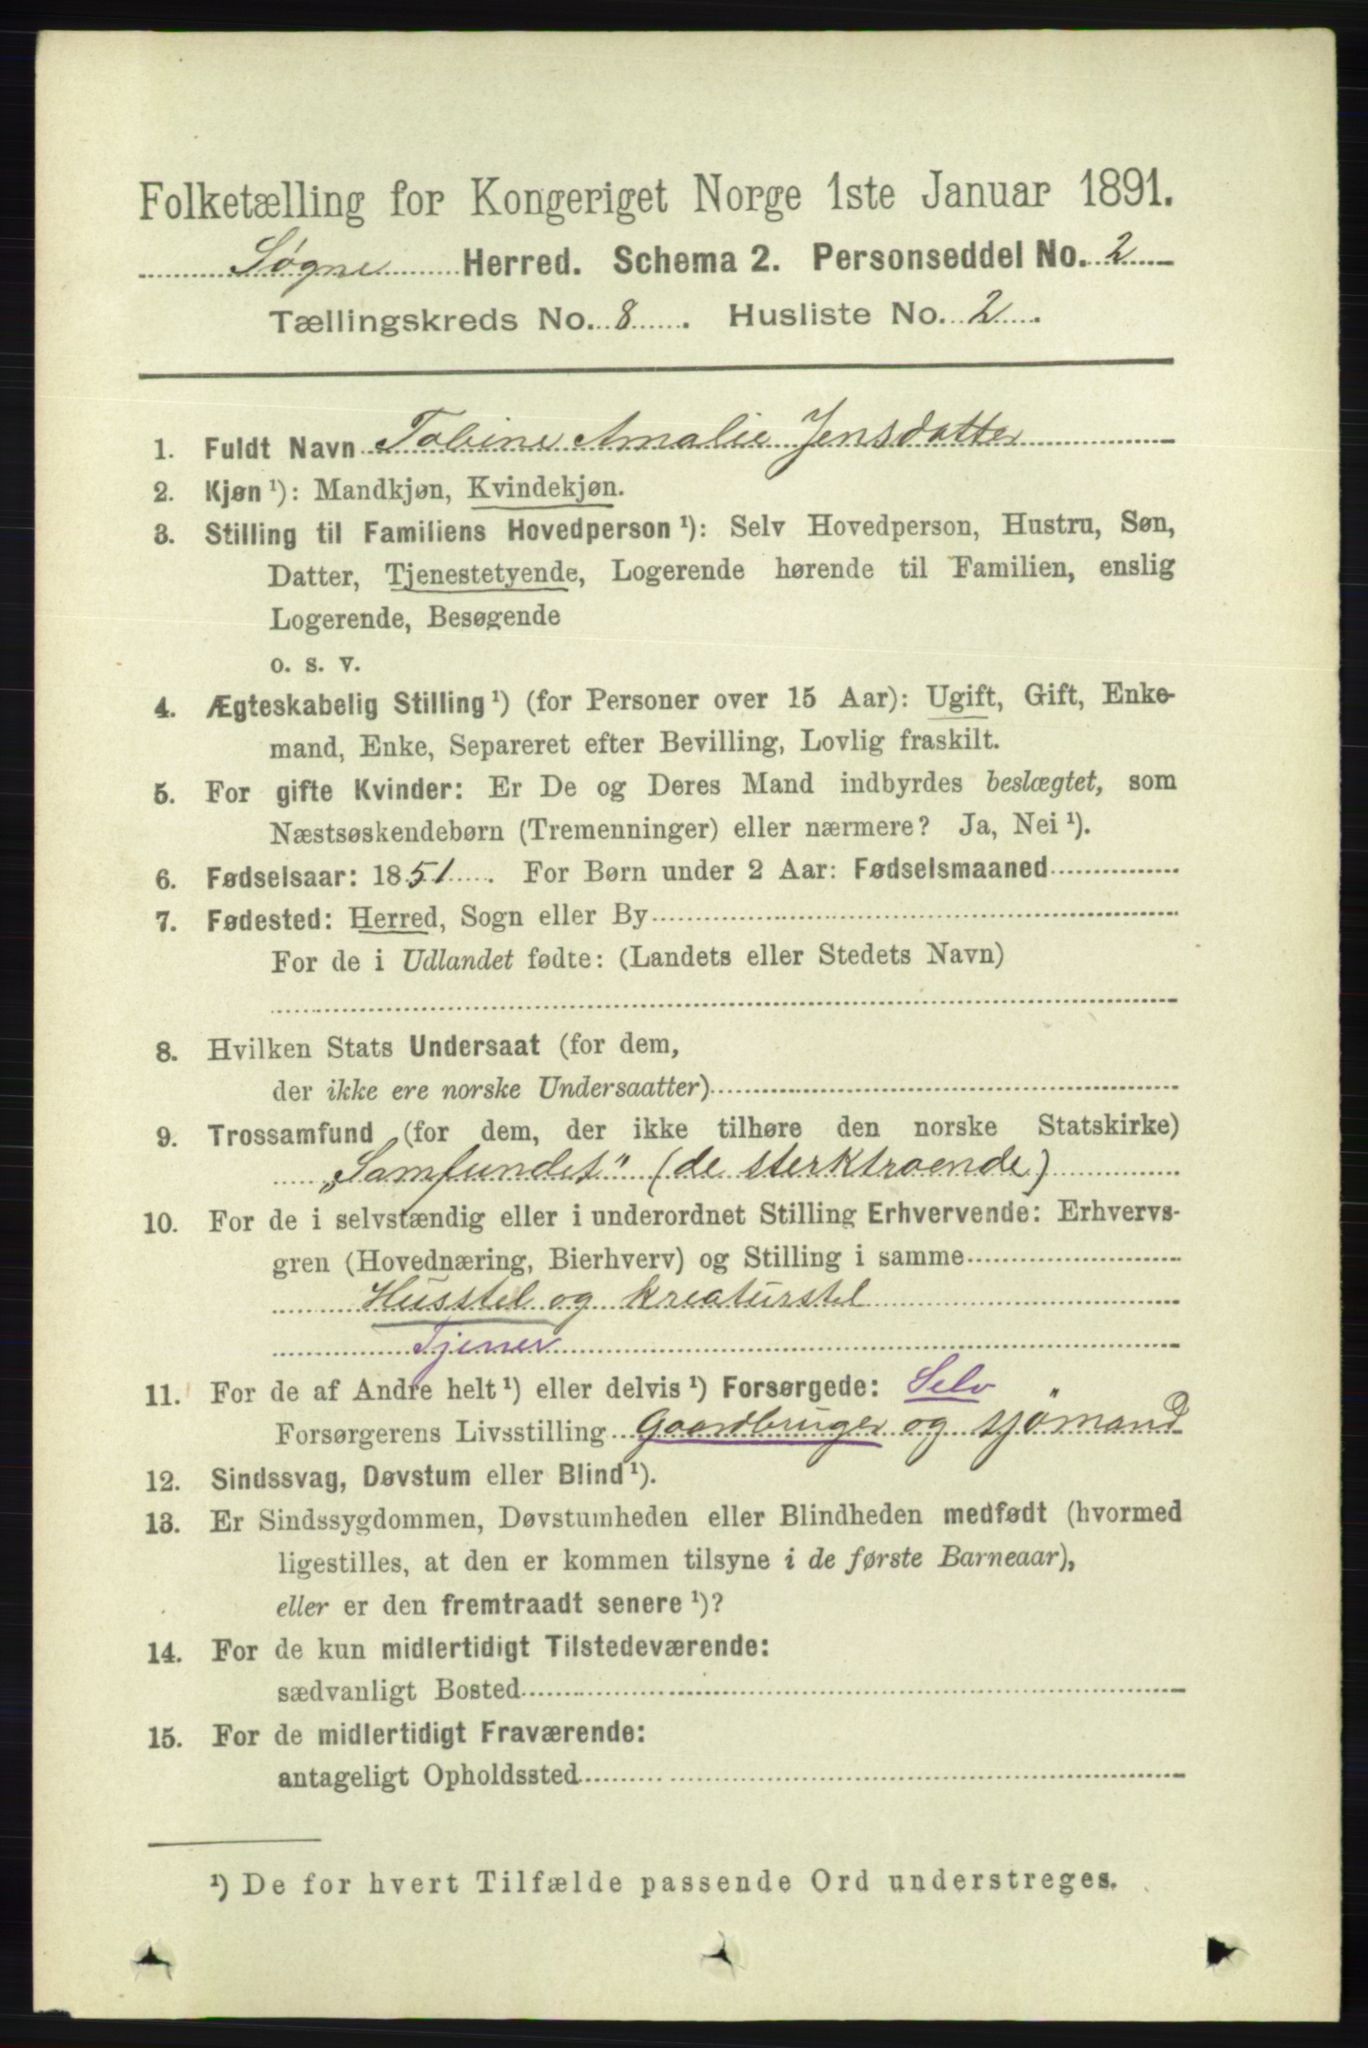 Folketælling for Kongeriget Norge 1ste Januar 1891.
Søgne Herred. Schema 2. Personseddel No. 2
Tællingskreds No. 8. Husliste No. 2.
1. Fuldt Navn Tobine Amalie Jensdatter
2. Kjøn ¹): Mandkjøn, Kvindekjøn.
3. Stilling til Familiens Hovedperson ¹): Selv Hovedperson, Hustru, Søn,
Datter, Tjenestetyende, Logerende hørende til Familien, enslig
Logerende, Besøgende
o. s. v.
4. Ægteskabelig Stilling ¹) (for Personer over 15 Aar): Ugift, Gift, Enke-
mand, Enke, Separeret efter Bevilling, Lovlig fraskilt.
5. For gifte Kvinder: Er De og Deres Mand indbyrdes beslægtet, som
Næstsøskendebørn (Tremenninger) eller nærmere? Ja, Nei ¹).
6. Fødselsaar: 1851. For Børn under 2 Aar: Fødselsmaaned
7. Fødested: Herred, Sogn eller By
For de i Udlandet fødte: (Landets eller Stedets Navn)
8. Hvilken Stats Undersaat (for dem,
der ikke ere norske Undersaatter)
9. Trossamfund (for dem, der ikke tilhøre den norske Statskirke)
„Samfundet" (de sterktroende)
10. For de i selvstændig eller i underordnet Stilling Erhvervende: Erhvervs-
gren (Hovednæring, Bierhverv) og Stilling i samme
Husstel og kreaturstel
Tjener
11. For de af Andre helt ¹) eller delvis ¹) Forsørgede: Selv
Forsørgerens Livsstilling Gaardbruger og sjömand
12. Sindssvag, Døvstum eller Blind ¹).
13. Er Sindssygdommen, Døvstumheden eller Blindheden medfødt (hvormed
ligestilles, at den er kommen tilsyne i de første Barneaar),
eller er den fremtraadt senere ¹)?
14. For de kun midlertidigt Tilstedeværende:
sædvanligt Bosted
15. For de midlertidigt Fraværende:
antageligt Opholdssted
¹) De for hvert Tilfælde passende Ord understreges.